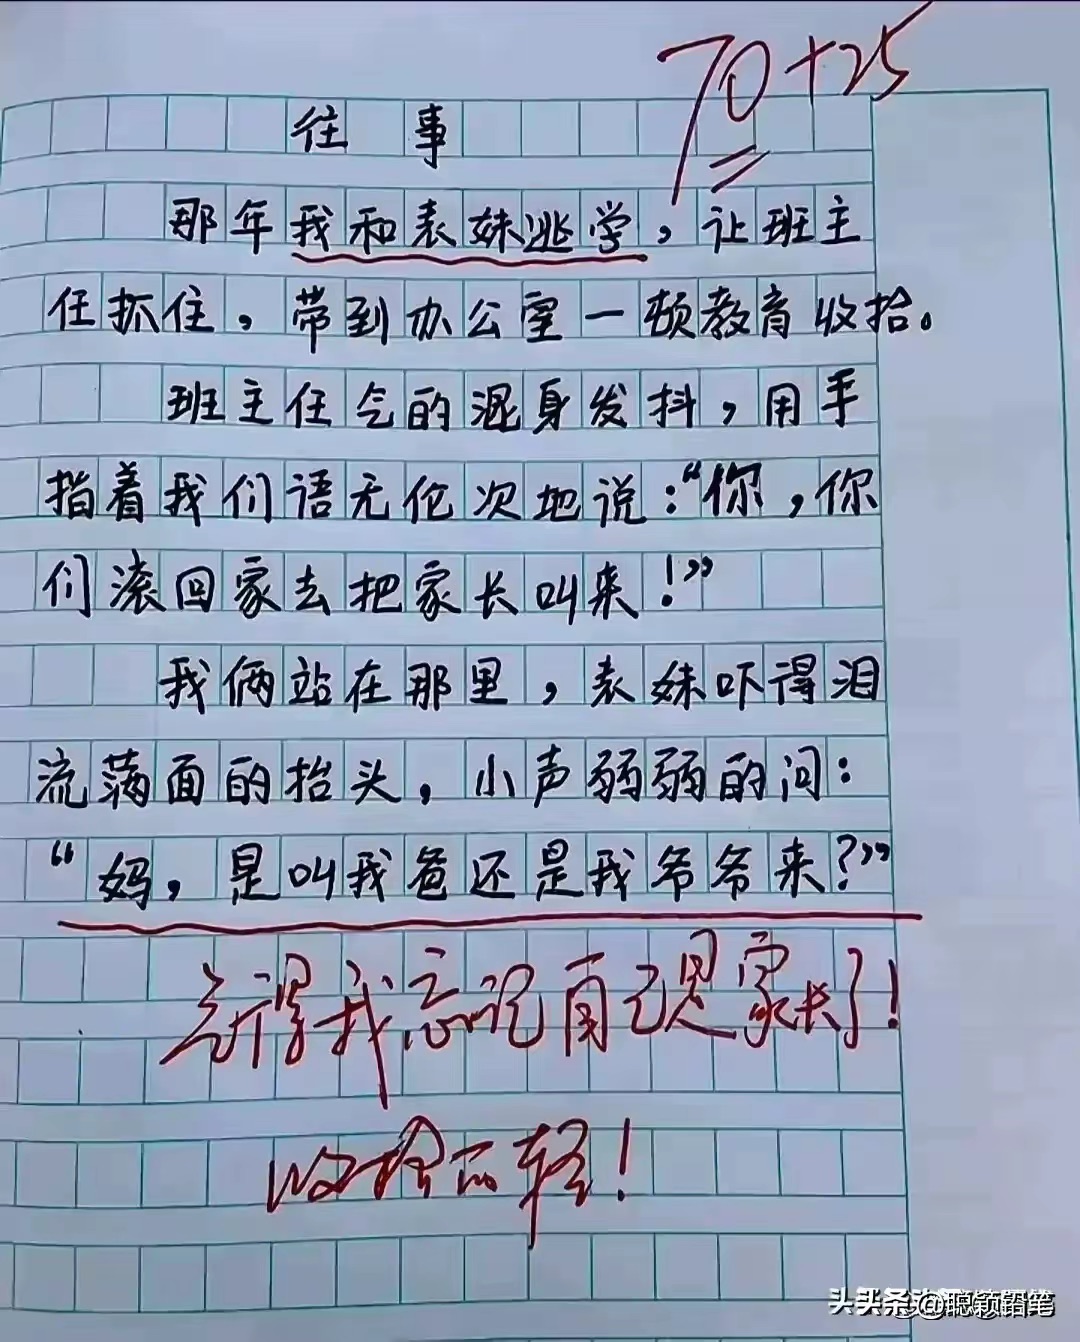 70+25
往事
那年我和表妹逃学,让班主
任抓住,带到办公室一顿教育收拾。
班主任气的混身发抖,用手
指着我们语无伦次地说:“你,你
们滚回家去把家长叫来!”
我俩站在那里,表妹吓得泪
流满面的抬头,小声弱弱的问:
“妈,是叫我爸还是我爷爷来?”
气得我忘记自己是家长了!
收拾的轻!
头条 @聪颖铅笔